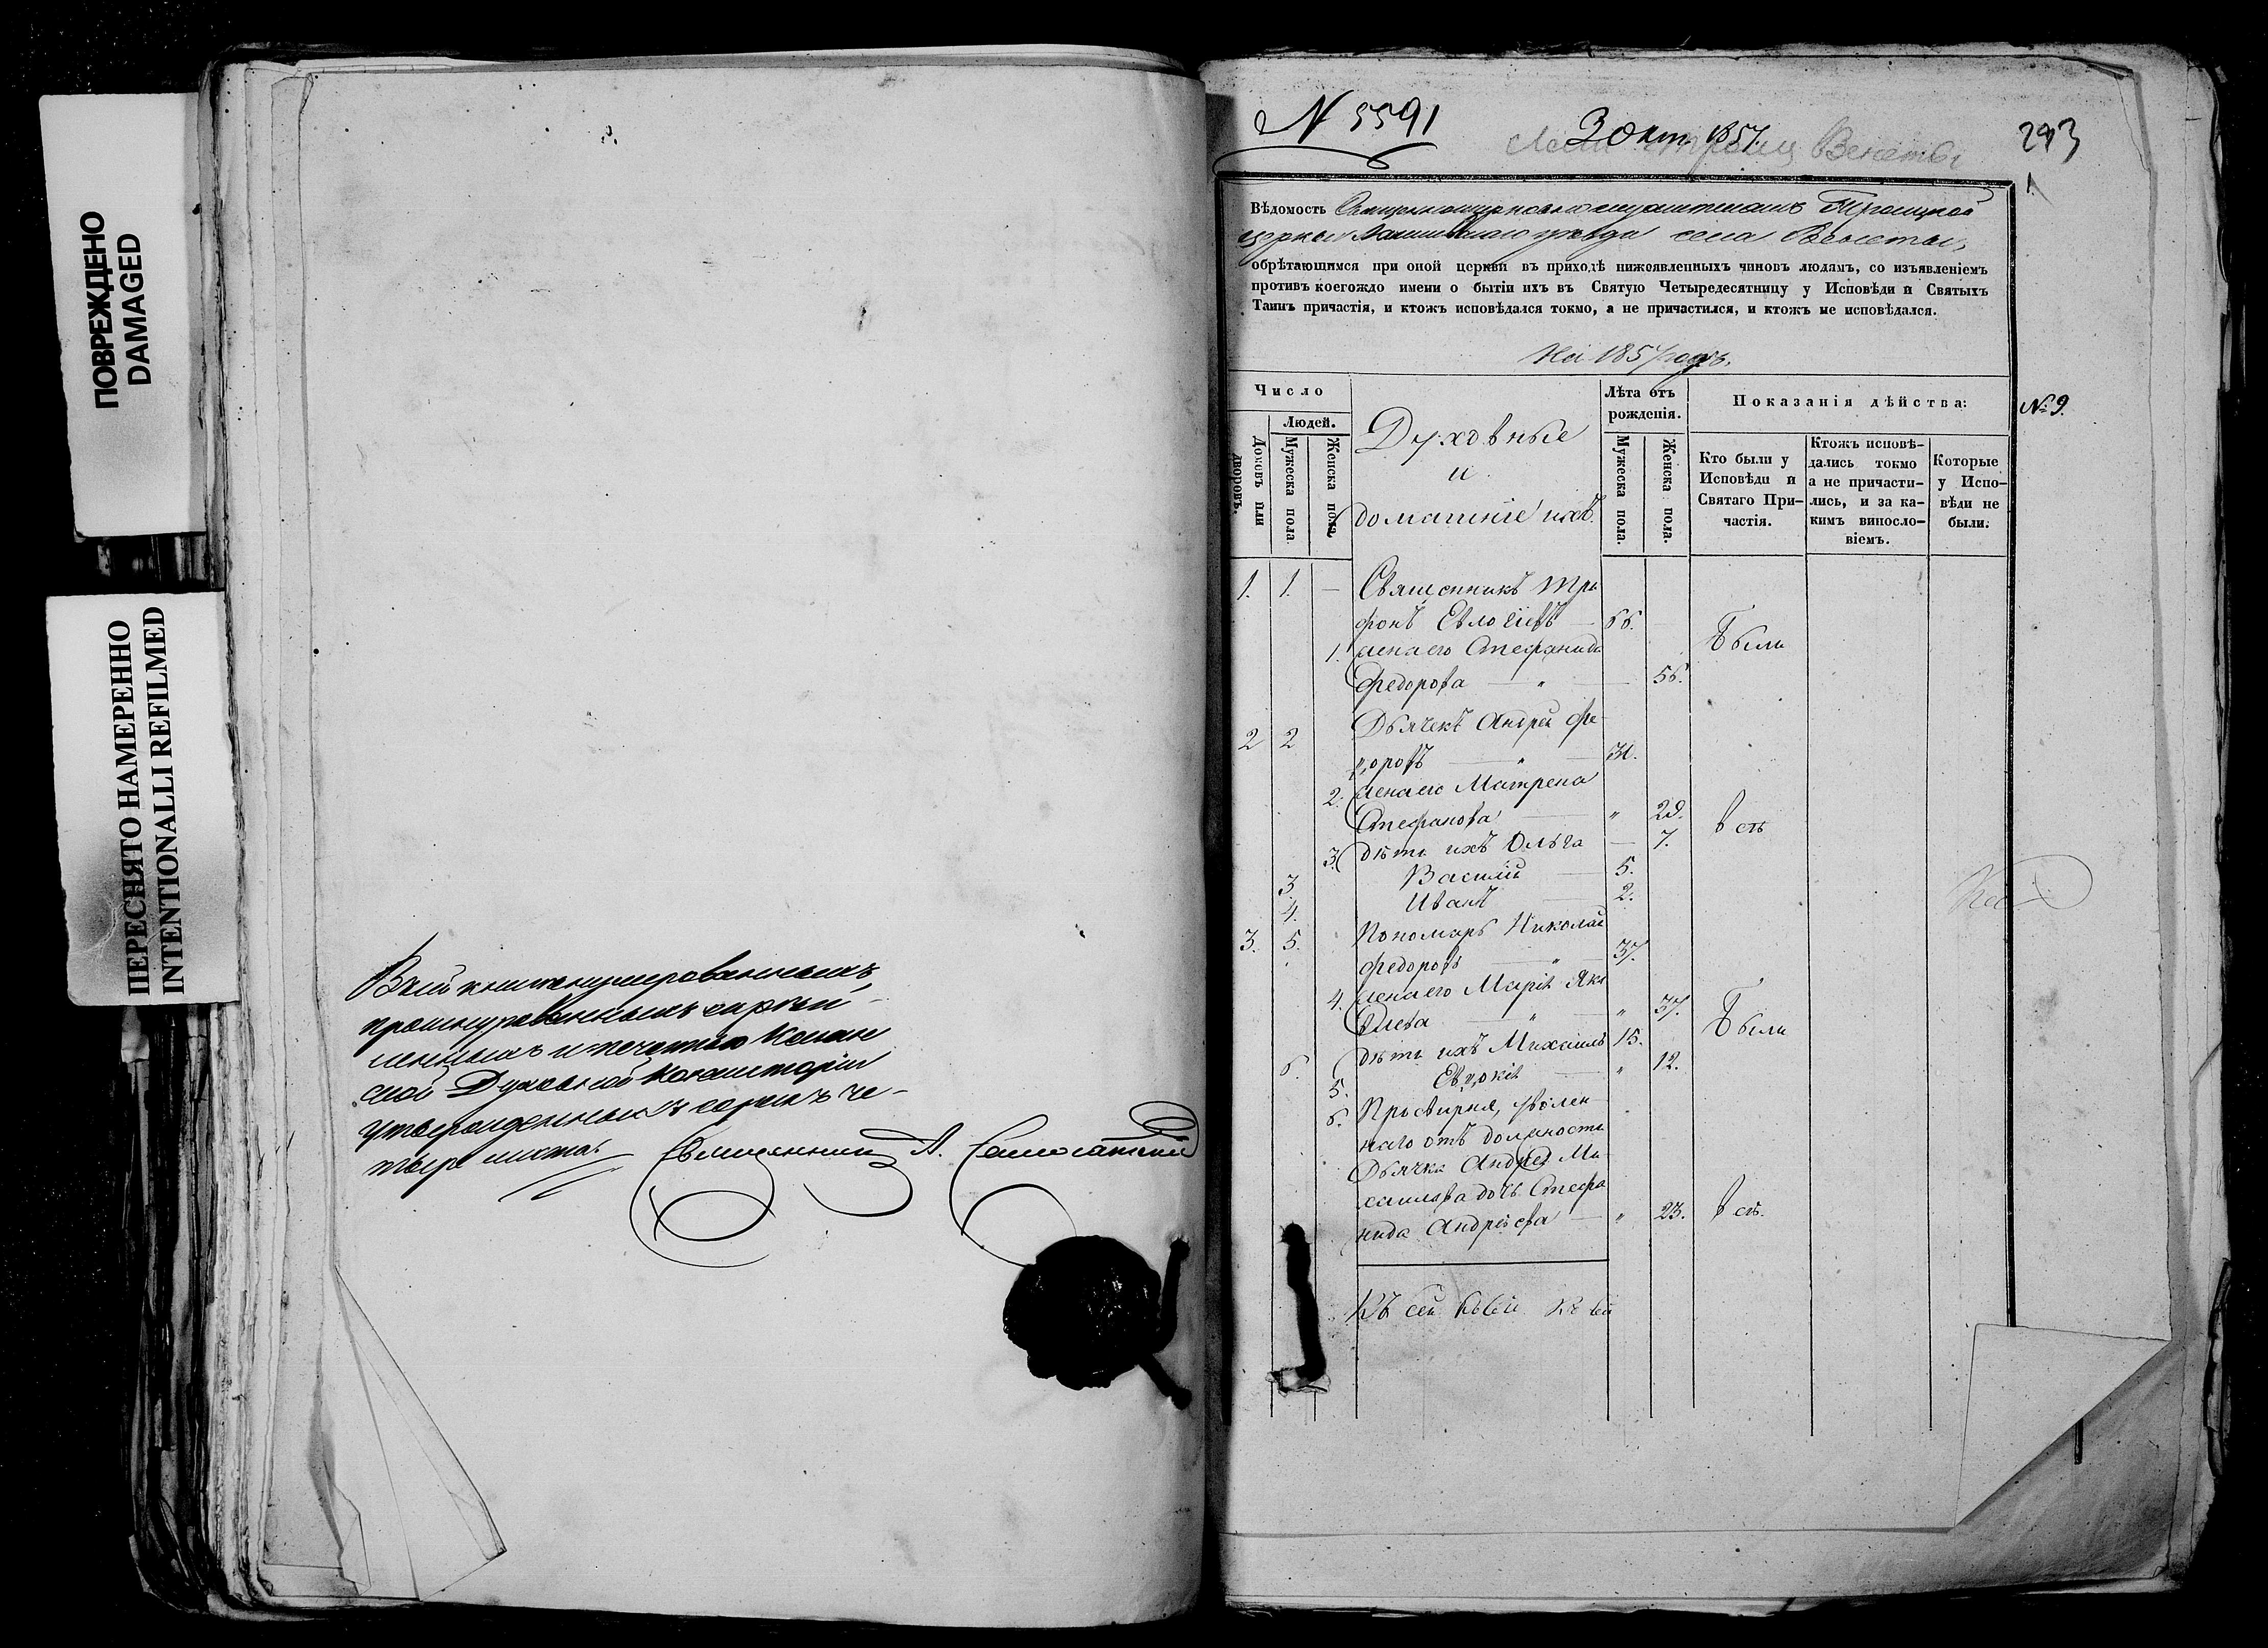 ПОВРЕЖДЕНО
DAMAGED
ПЕРЕСНЯТО НАМЕРЕННО
INTENTIONALLI REFILMED
Въ сей книге нумерованныхъ,
прошнурованныхъ скреп-
ленныхъ и печатью Казан
ской Духовной Консисторіи
утвержденныхъ сорокъ че-
тыре листа.
Священникъ А.
N 5591
3 Окт. 1857.
293
Троиц Венеты
1.
Вѣдомость Священноцерковнослужителямъ Троицкой
церкви Лаишевскаго уѣзда села Венеты,
обрѣтающимся при оной церкви въ приходѣ нижеявленныхъ чиновъ людямъ, со изъявленіемъ
противъ коегождо имени о бытіи ихъ въ Святую Четыредесятницу у Исповѣди и Святыхъ
Таинъ причастія, и ктожъ исповѣдался токмо, а не причастился, и ктожъ не исповѣдался.
На 1857 годъ.
Число
Людей.
Домовъ или дворовъ.
Мужеска пола.
Женска пола.
Духовные
и
домашніе ихъ.
Лѣта отъ рожденія.
Мужеска пола.
Женска пола.
Показанія дѣйства:
Кто были у Исповѣди и Святаго Причастія.
Ктожъ исповѣдались токмо а не причастились, и за какимъ винословіемъ.
Которые у Исповѣди не были.
№ 9.
1. 1. — Священникъ Три
фонъ Евлогіевъ — 66.
1. жена его Стефанида Были
Федорова — " — 56.
2 2 Дьячекъ Андрей Фе
доровъ — " — 31.
2. жена его Матрена
Стефанова — " 29. в ст
3. дѣти ихъ Ольга — 7.
3. Василій — 5.
4. Иванъ — 2.
3. 5. Пономарь Николай
Федоровъ — " — 37.
4. жена его Марія Яко
влева — " — " 37.
6. дѣти ихъ Михаилъ 15. Были
5. Евдокія — " 12.
6. Просвирня, уволен
наго отъ должности
Дьячка Андрея Ми
хаилова дочь Стефа
нида Андреева — " 23. в ст.
Къ сей